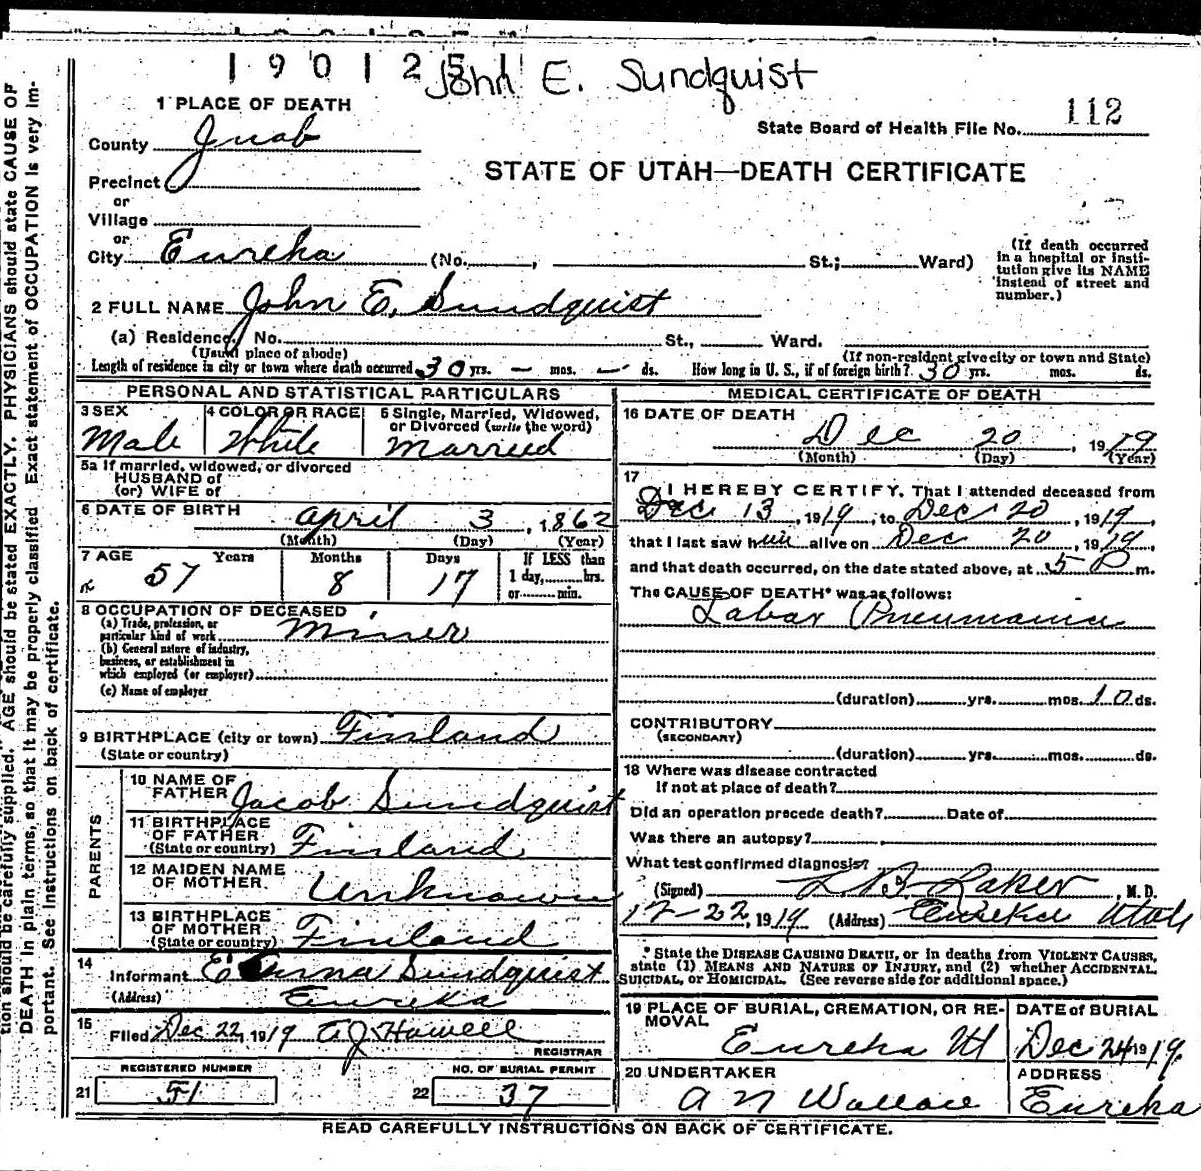 1901251
John E. Sundquist
1 PLACE OF DEATH
112
State Board of Health File No.
County Juab
STATE OF UTAH—DEATH CERTIFICATE
Precinct
or
Village
or
City Eureka (No. , St.; Ward)
(If death occurred in a hospital or institution give its NAME instead of street and number.)
2 FULL NAME John E. Sundquist
(a) Residence, No. St., Ward.
(Usual place of abode) (If non-resident give city or town and State)
Length of residence in city or town where death occurred 30 yrs. — mos. — ds. How long in U. S., if of foreign birth? 30 yrs. mos. ds.
PERSONAL AND STATISTICAL PARTICULARS
3 SEX 4 COLOR OR RACE 5 Single, Married, Widowed, or Divorced (write the word)
Male White Married
5a If married, widowed, or divorced
HUSBAND of
(or) WIFE of
6 DATE OF BIRTH
April 3, 1862
(Month) (Day) (Year)
7 AGE Years Months Days If LESS than
57 8 17 1 day, hrs.
or min.
8 OCCUPATION OF DECEASED
(a) Trade, profession, or
particular kind of work Miner
(b) General nature of industry,
business, or establishment in
which employed (or employer)
(c) Name of employer
9 BIRTHPLACE (city or town) Finland
(State or country)
PARENTS
10 NAME OF
FATHER Jacob Sundquist
11 BIRTHPLACE
OF FATHER
(State or country) Finland
12 MAIDEN NAME
OF MOTHER Unknown
13 BIRTHPLACE
OF MOTHER
(State or country) Finland
14
Informant Sundquist
(Address) Eureka
15
Filed Dec 22, 1919 Howell
REGISTRAR
REGISTERED NUMBER NO. OF BURIAL PERMIT
21 51 22 37
MEDICAL CERTIFICATE OF DEATH
16 DATE OF DEATH
Dec 20, 1919
(Month) (Day) (Year)
17
I HEREBY CERTIFY, That I attended deceased from
Dec 13, 1919, to Dec 20, 1919,
that I last saw him alive on Dec 20, 1919,
and that death occurred, on the date stated above, at 5 P m.
The CAUSE OF DEATH* was as follows:
Labar Pneumonia
(duration) yrs. mos. 10 ds.
CONTRIBUTORY
(SECONDARY)
(duration) yrs. mos. ds.
18 Where was disease contracted
If not at place of death?
Did an operation precede death? Date of
Was there an autopsy?
What test confirmed diagnosis?
(Signed) , M. D.
12-22, 1919 (Address) Eureka Utah
* State the DISEASE CAUSING DEATH, or in deaths from VIOLENT CAUSES,
state (1) MEANS AND NATURE OF INJURY, and (2) whether ACCIDENTAL,
SUICIDAL, or HOMICIDAL. (See reverse side for additional space.)
19 PLACE OF BURIAL, CREMATION, OR RE-
MOVAL
Eureka Ut
DATE of BURIAL
Dec 24 1919.
20 UNDERTAKER
A N Wallace
ADDRESS
Eureka
READ CAREFULLY INSTRUCTIONS ON BACK OF CERTIFICATE.
tion should be carefully supplied. AGE should be stated EXACTLY. PHYSICIANS should state CAUSE OF
DEATH in plain terms, so that it may be properly classified. Exact statement of OCCUPATION is very im-
portant. See Instructions on back of certificate.